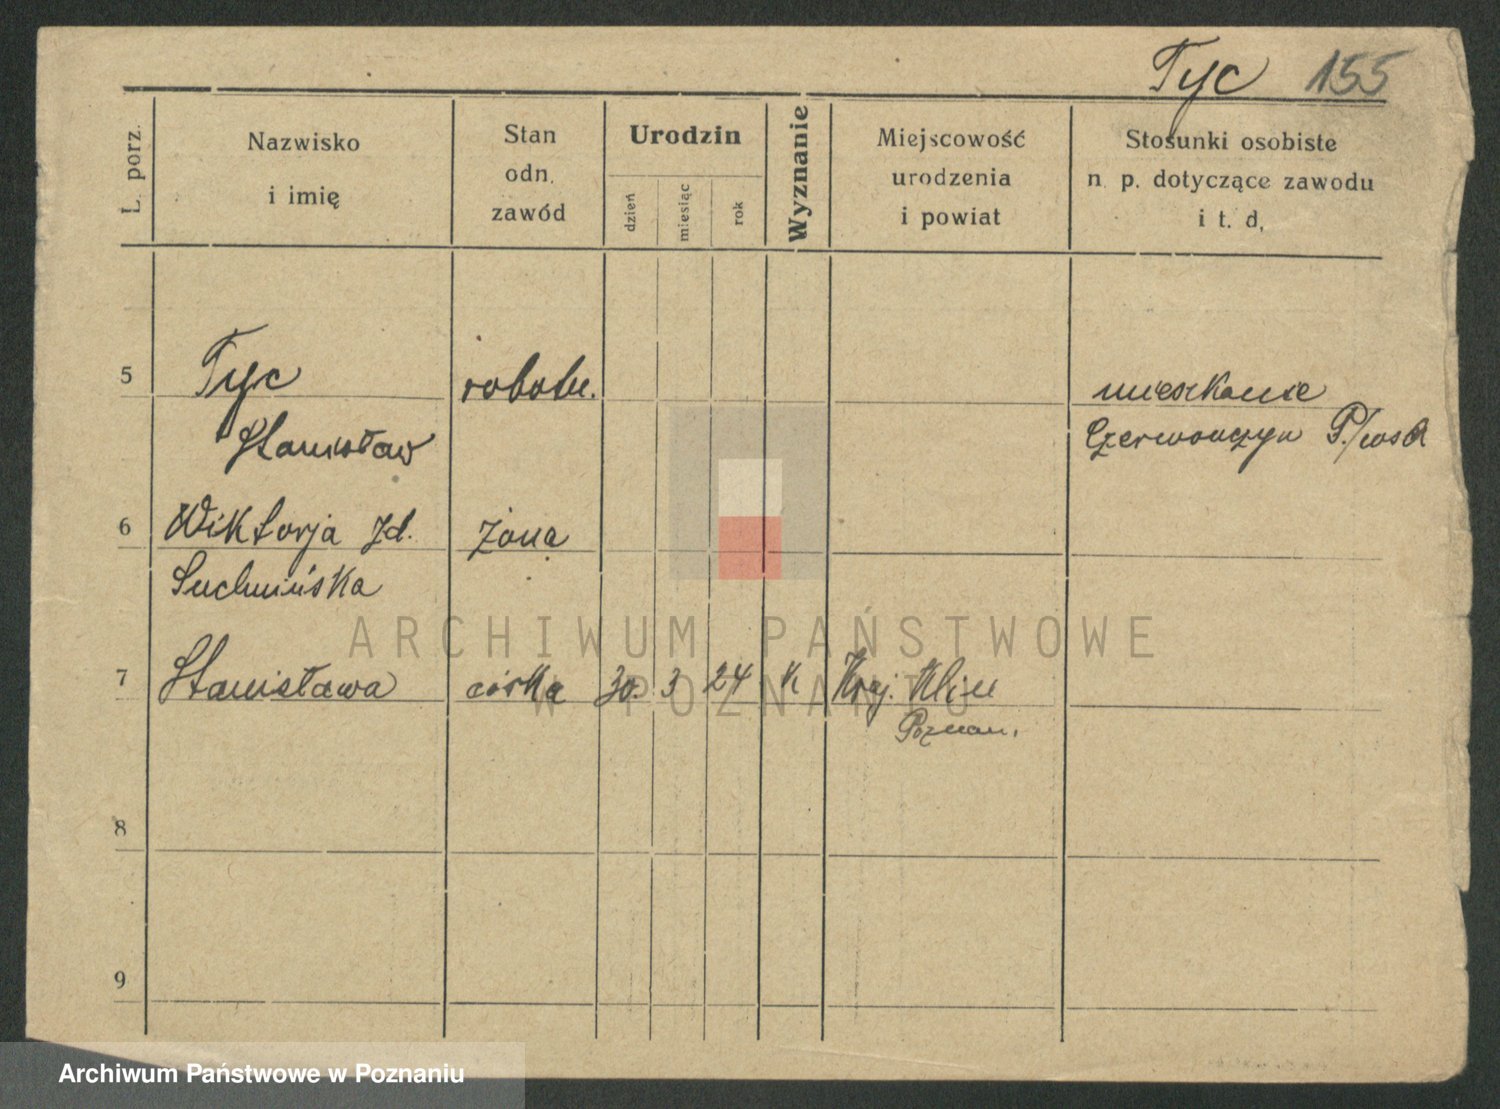 Tyc 155
L. porz.
Nazwisko
i imię
Stan
odn.
zawód
Urodzin
dzień
miesiąc
rok
Wyznanie
Miejscowość
urodzenia
i powiat
Stosunki osobiste
n. p. dotyczące zawodu
i t. d.
5 Tyc robotn. mieszkanie
Stanisław Czerwonczyn
6 Wiktorja żona
Suchmińska
7 Stanisława córka 30. 3 24 K Kraj.
Poznan.
8
9
ARCHIWUM PAŃSTWOWE
W POZNANIU
Archiwum Państwowe w Poznaniu